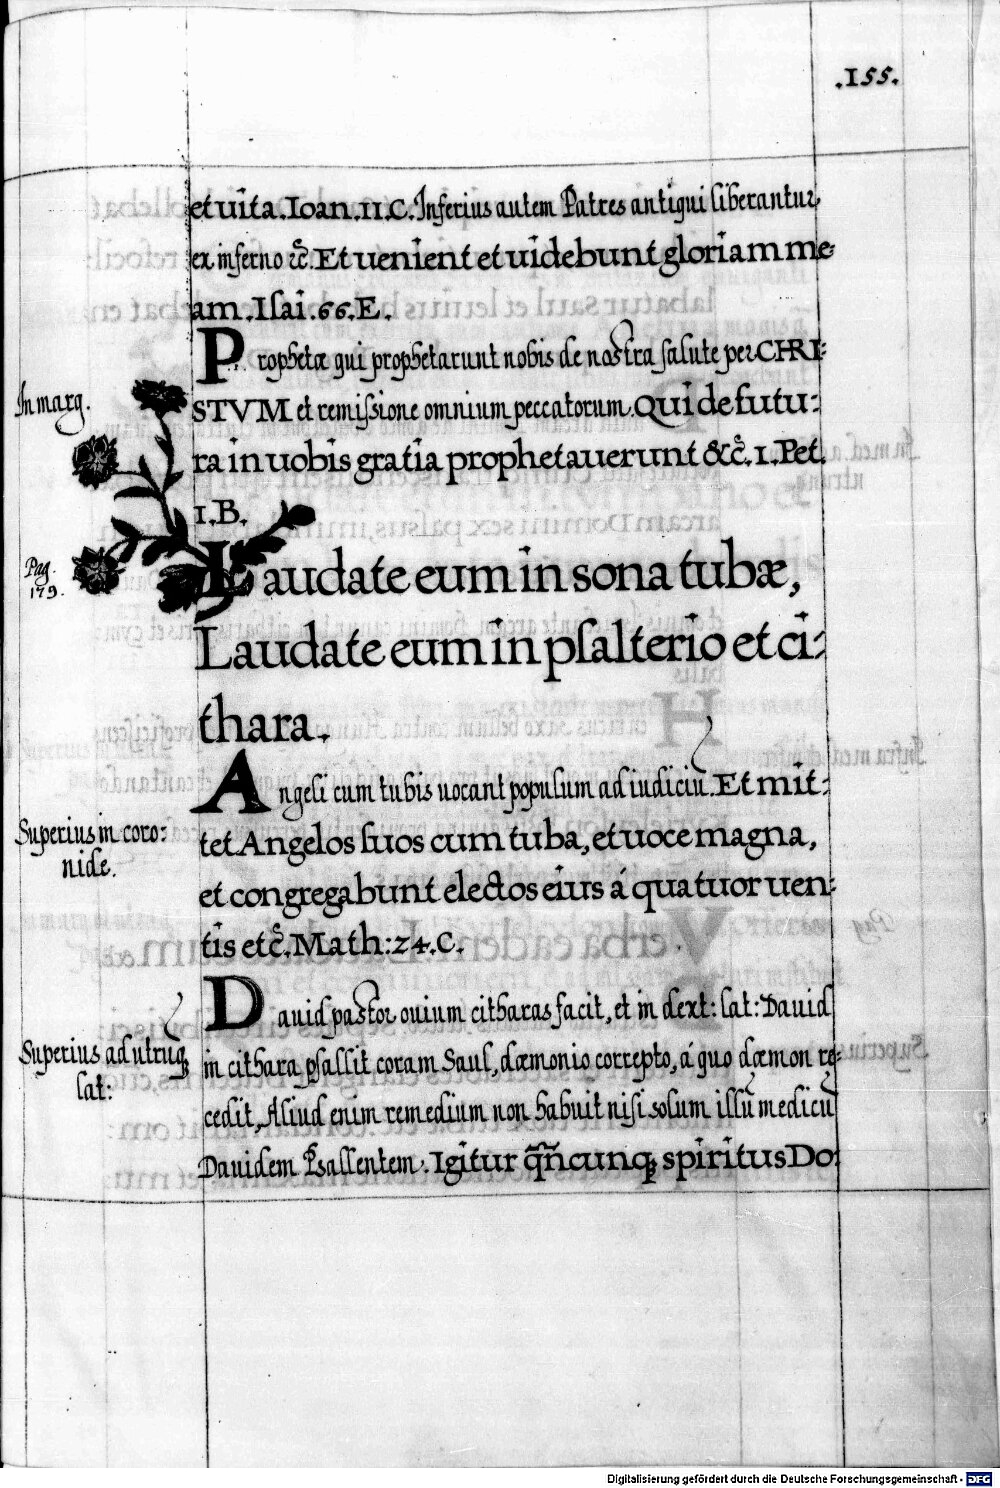 .155.
et uita. Ioan. 11. C. Inferius autem Patres antiqui liberantur
ex inferno &c̃. Et uenient et uidebunt gloriam me-
am. Isai. 66. E.
In marg.
Prophetæ qui prophetarunt nobis de nostra salute per CHRI-
STVM et remissione omnium peccatorum. Qui de futu:
ra in uobis gratia prophetauerunt &c̃. 1. Pet.
1. B.
Pag. 179.
Laudate eum in sona tubæ,
Laudate eum in psalterio et ci:
thara.
Angeli cum tubis uocant populum ad iudiciũ. Et mit:
Superius in coro:
nide.
tet Angelos suos cum tuba, et uoce magna,
et congregabunt electos eius á quatuor uen:
tis etc̃. Math: 24. C.
Dauid pastor ouium citharas facit, et in dext: lat: Dauid
Superius ad utrũq
lat:
in cithara psallit coram Saul, dæmonio correpto, á quo dæmon re-
cedit, Aliud enim remedium non habuit nisi solum illũ medicũ
Dauidem Psallentem. Igitur qñcunq spiritus Do:
Digitalisierung gefördert durch die Deutsche Forschungsgemeinschaft - DFG